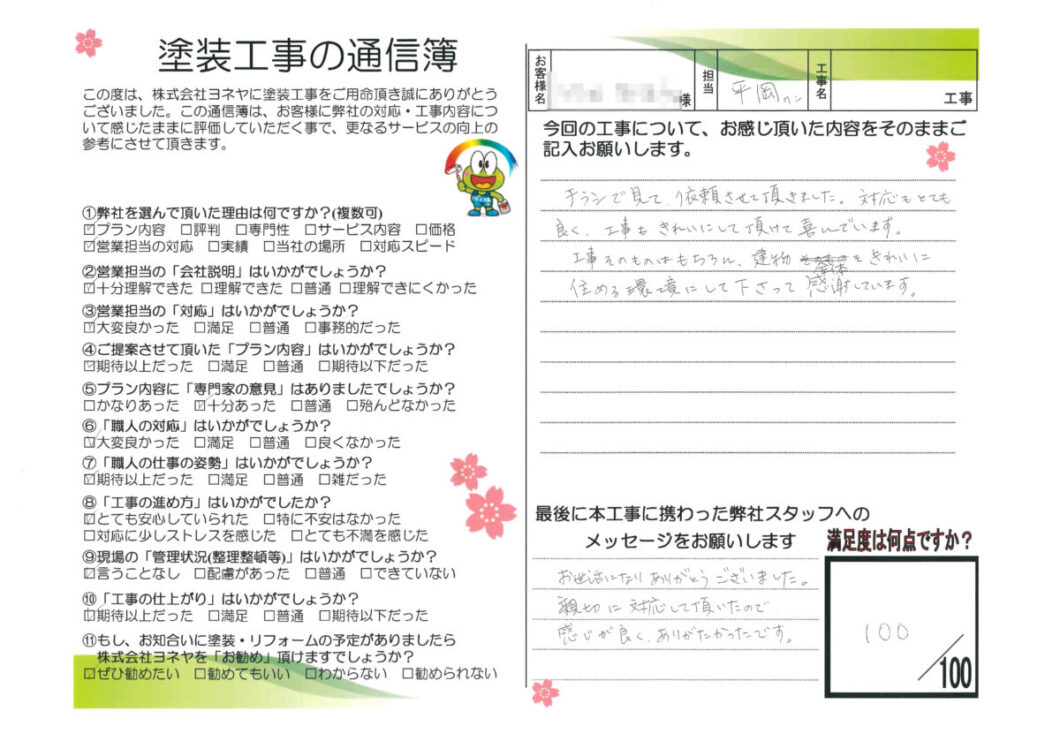 塗装工事の通信簿
この度は、株式会社ヨネヤに塗装工事をご用命頂き誠にありがとう
ございました。この通信簿は、お客様に弊社の対応・工事内容につ
いて感じたままに評価していただく事で、更なるサービスの向上の
参考にさせて頂きます。
①弊社を選んで頂いた理由は何ですか？(複数可)
☑プラン内容 □評判 □専門性 □サービス内容 □価格
☑営業担当の対応 □実績 □当社の場所 □対応スピード
②営業担当の「会社説明」はいかがでしょうか？
☑十分理解できた □理解できた □普通 □理解できにくかった
③営業担当の「対応」はいかがでしょうか？
☑大変良かった □満足 □普通 □事務的だった
④ご提案させて頂いた「プラン内容」はいかがでしょうか？
☑期待以上だった □満足 □普通 □期待以下だった
⑤プラン内容に「専門家の意見」はありましたでしょうか？
□かなりあった ☑十分あった □普通 □殆んどなかった
⑥「職人の対応」はいかがでしょうか？
☑大変良かった □満足 □普通 □良くなかった
⑦「職人の仕事の姿勢」はいかがでしょうか？
☑期待以上だった □満足 □普通 □雑だった
⑧「工事の進め方」はいかがでしたか？
☑とても安心していられた □特に不安はなかった
□対応に少しストレスを感じた □とても不満を感じた
⑨現場の「管理状況(整理整頓等)」はいかがでしょうか？
☑言うことなし □配慮があった □普通 □できていない
⑩「工事の仕上がり」はいかがでしょうか？
☑期待以上だった □満足 □普通 □期待以下だった
⑪もし、お知合いに塗装・リフォームの予定がありましたら
株式会社ヨネヤを「お勧め」頂けますでしょうか？
☑ぜひ勧めたい □勧めてもいい □わからない □勧められない
お客様名 様 担当 平岡サン 工事名 工事
今回の工事について、お感じ頂いた内容をそのままご
記入お願いします。
チラシで見て、依頼させて頂きました。対応もとても
良く、工事もきれいにして頂けて喜んでいます。
工事そのものはもちろん、建物全体をきれいに
住める環境にして下さって感謝しています。
最後に本工事に携わった弊社スタッフへの
メッセージをお願いします
お世話になりありがとうございました。
親切に対応して頂いたので
感じが良く、ありがたかったです。
満足度は何点ですか？
100
/100